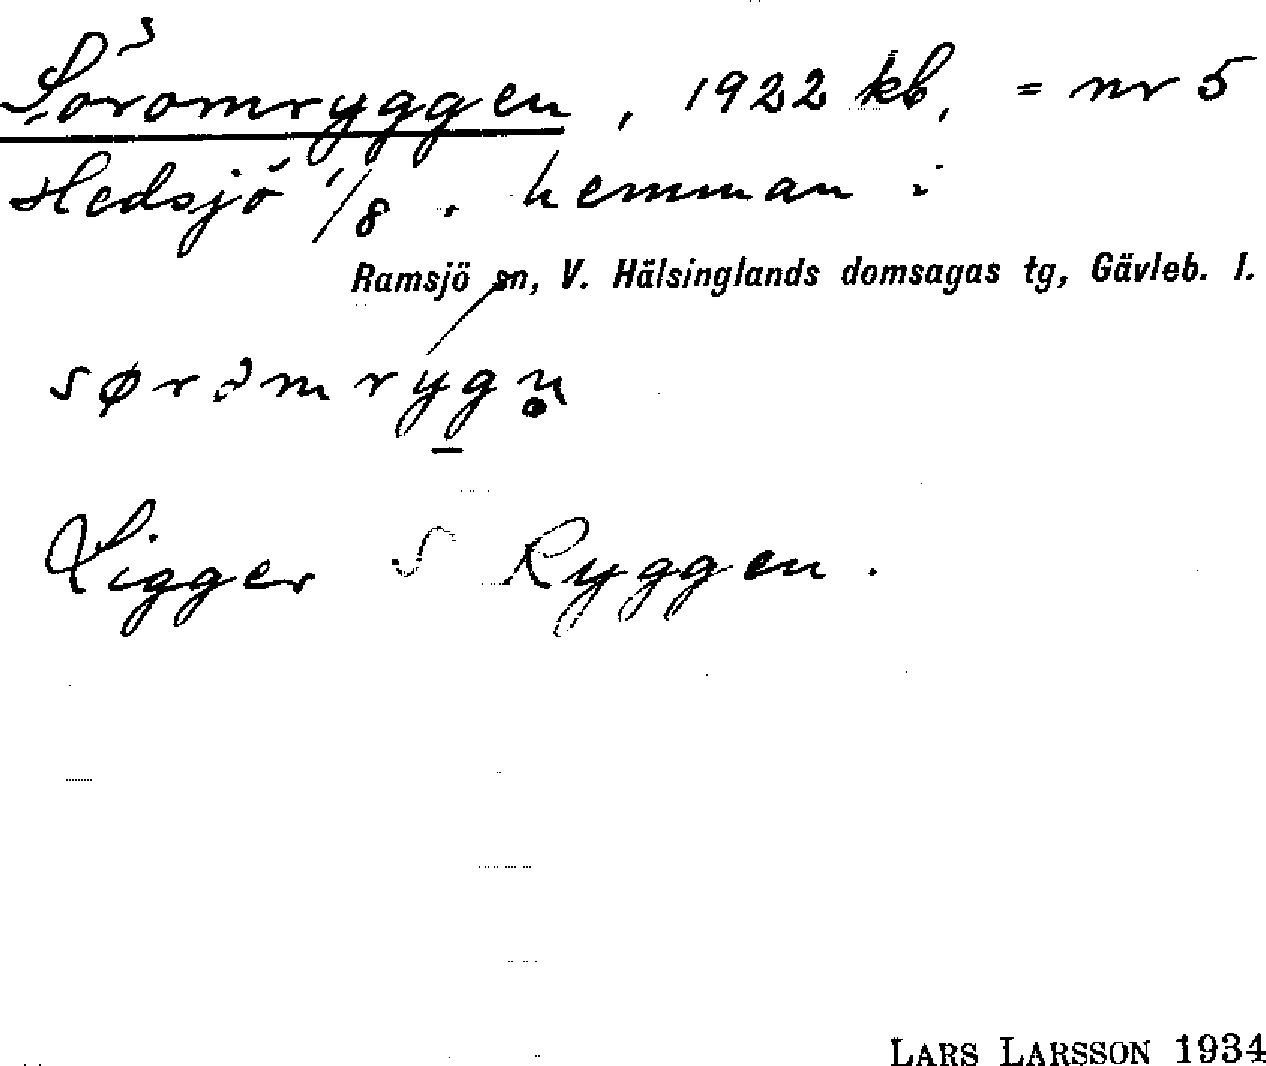 Söromryggen, 1922 kb. = nr 5
Hedsjö 1/8. hemman i
Ramsjö sn, V. Hälsinglands domsagas tg, Gävleb. l.
søråmrygn̥
Ligger S Ryggen.
LARS LARSSON 1934